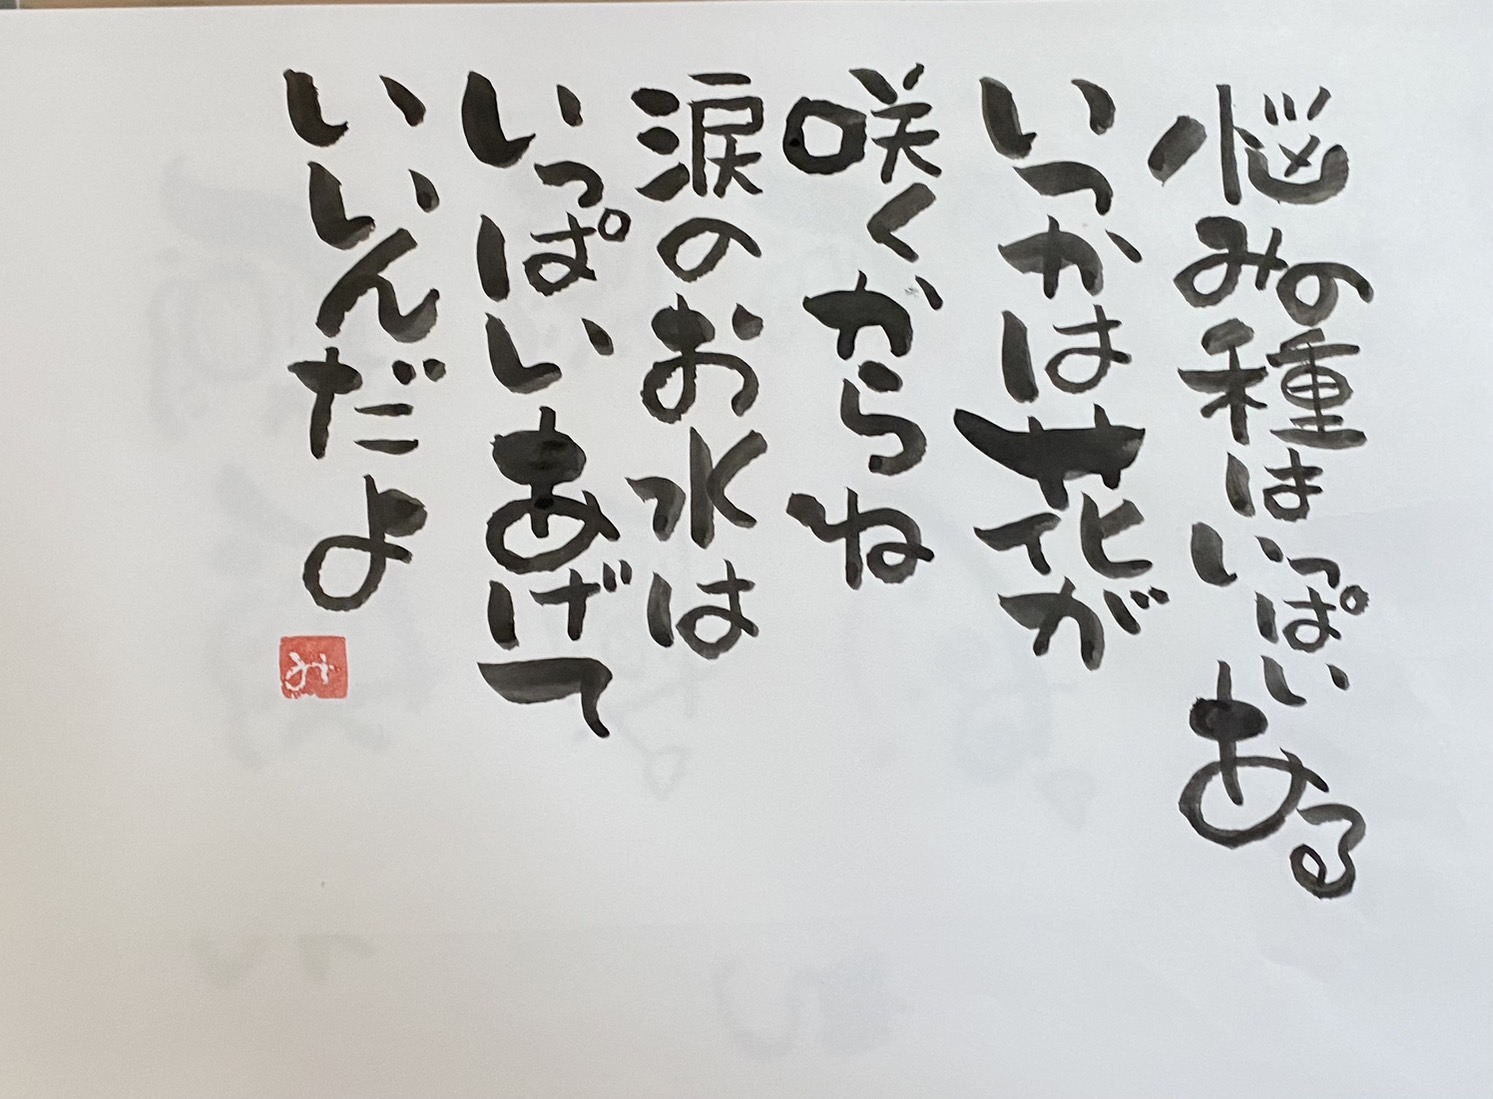 悩みの種はいっぱいある
いつかは花が
咲くからね
涙のお水は
いっぱいあげて
いいんだよ
み